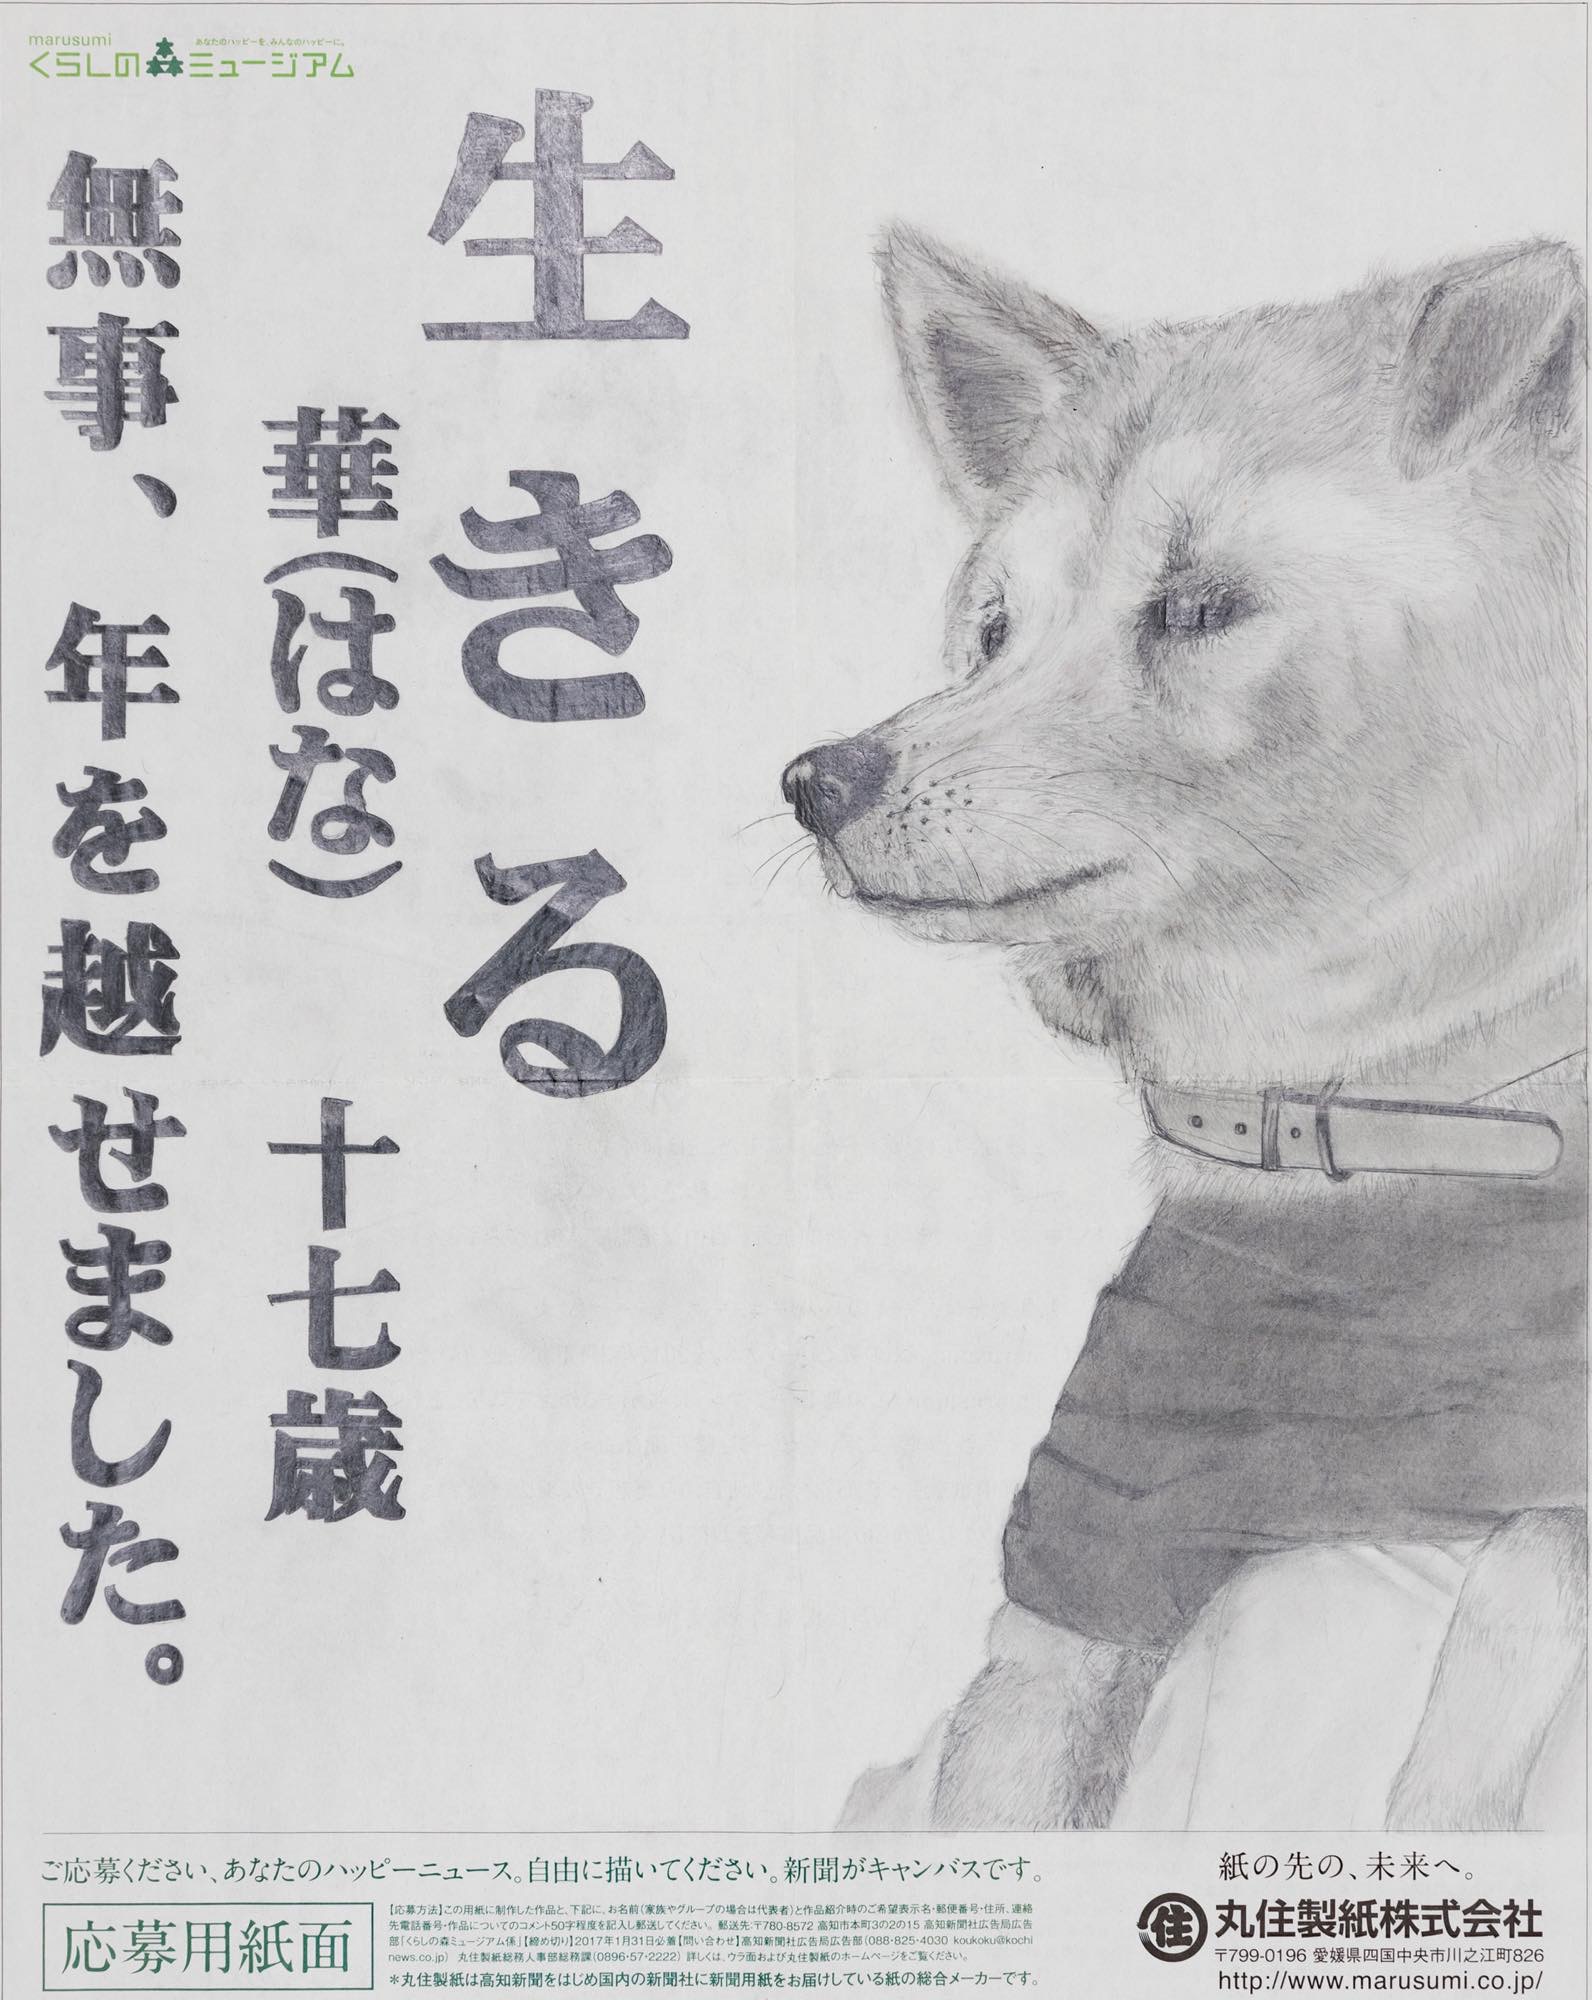 marusumi
あなたのハッピーを、みんなのハッピーに。
くらしの森ミュージアム
生きる
華(はな) 十七歳
無事、年を越せました。
ご応募ください、あなたのハッピーニュース。自由に描いてください。新聞がキャンバスです。
応募用紙面
【応募方法】この用紙に制作した作品と、下記に、お名前(家族やグループの場合は代表者)と作品紹介時のご希望表示名・郵便番号・住所、連絡
先電話番号・作品についてのコメント50字程度を記入し郵送してください。郵送先:〒780-8572 高知市本町3の2の15 高知新聞社広告局広告
部「くらしの森ミュージアム係」【締め切り】2017年1月31日必着【問い合わせ】高知新聞社広告局広告部(088・825・4030 koukoku@kochi
news.co.jp) 丸住製紙総務人事部総務課(0896・57・2222) 詳しくは、ウラ面および丸住製紙のホームページをご覧ください。
*丸住製紙は高知新聞をはじめ国内の新聞社に新聞用紙をお届けしている紙の総合メーカーです。
紙の先の、未来へ。
住 丸住製紙株式会社
〒799-0196 愛媛県四国中央市川之江町826
http://www.marusumi.co.jp/